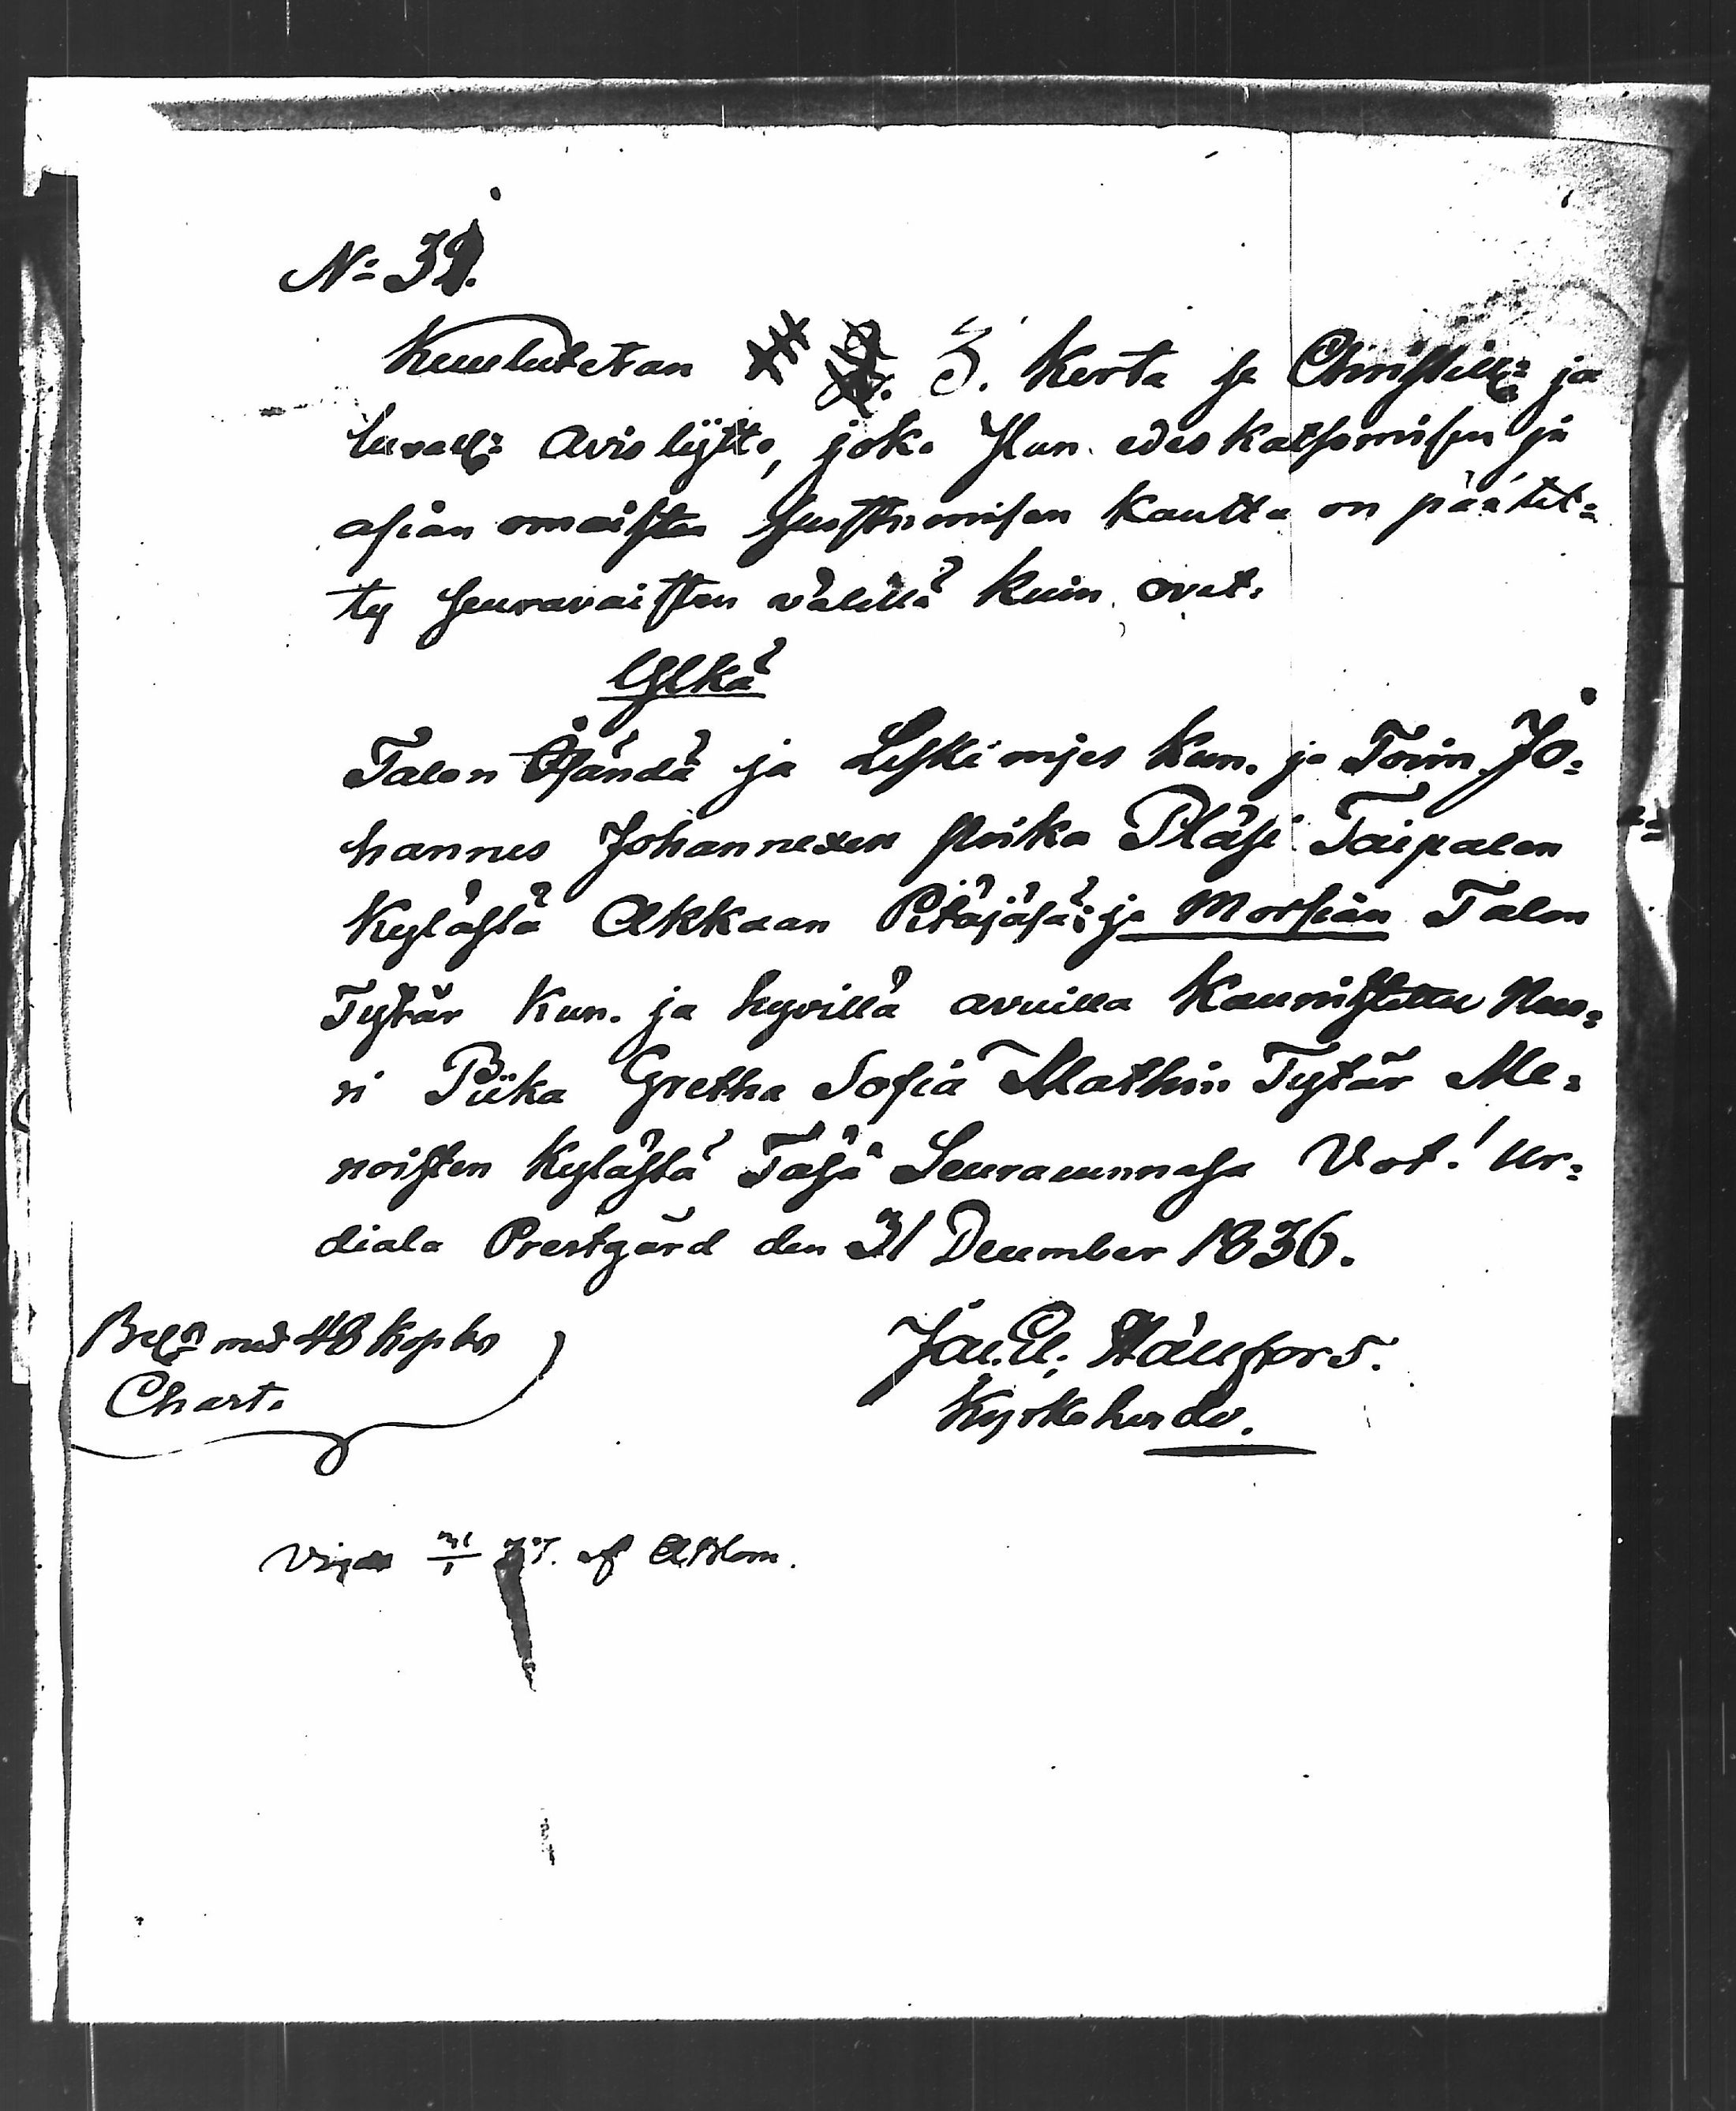 No 39.
Kuulutetan 3. Kerta se Christill: ja
luvall: Avio liytto, joka Jlan edes katsomisen ja
asian omaisten suostumisen kautta on päätet=
ty seuravaisten välillä kuin ovat.
Ylkä
Talon Isändä ja Leski mjes Kun. ja Toim. Jo=
hannes Johannexen poika Pläsi Taipalen
Kylästä Akkaan Pitäjäsä: ja Morsian Talon
Tytär Kun. ja hyvillä avuilla Kaunistettu Nuo=
ri Piika Gretha Sofia Mathin Tytär Me=
noisten Kylästä Täsä Seuracunnasa Vot.! Ur=
diala Prestgård den 31 December 1836.
Bel. med 48 Kop. br
Charta
Kyrkoherde.
Vigde 31/1 37. af